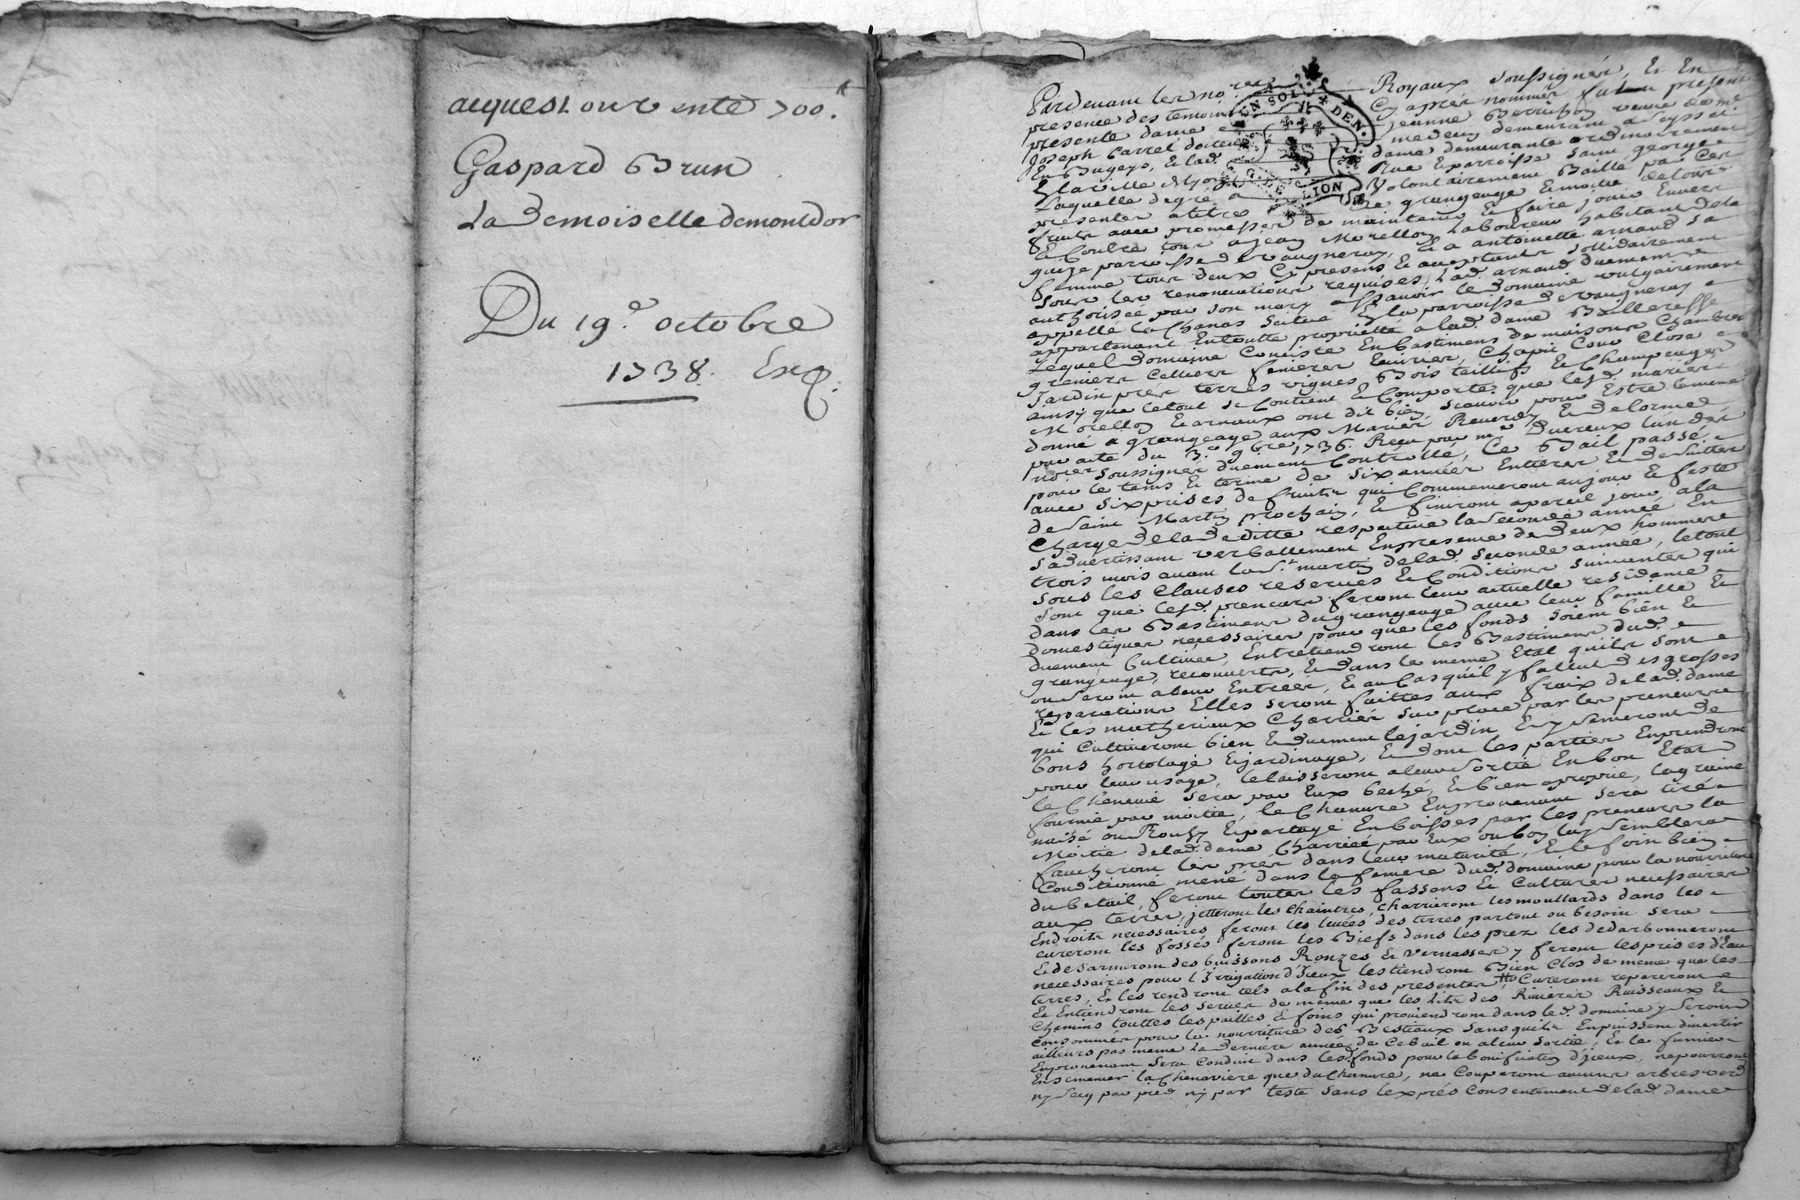 acquest ou vente 700.#
Gaspard Brun
La Demoiselle demontdor
Du 19.e octobre
1738. Exp.
Pardevant les no.res Royaux soussignés, Et En
presence des temoins Cy aprés nommés fut
presente dame jeanne Berrishon veuve de
Joseph Carrel docteur medecin demeurant a Seyssel
En Bugeys, Elad. dame demeurante ordinairement
Laquelle degré a Volontairement Baillé par Ces
presentes a titre De grangeage Et moitié de tous
fruits avec promesses de maintenir Et faire jouir Envers
Et Contre tous a jean Morellon Laboureur habitant dela
paroisse de Vaugneray, Et a antoinette arnaud sa
femme tous deux Cy presens Et acceptants sollidairement
sous les renonciations requises, Lad. arnaud duement
authorisée par son mary assavoir le Domaine vulgairement
appellé la Chanas Scitué En la parroisse de Vaugneray
appartenant En toutte proprietté a lad. dame Bailleresse
Lequel domaine Consiste En Bastimens de maisons Chambres
greniers Celliers feniere Ecurier, Chapit Cour Close
Jardin prés terres vignes Bois taillifs Et Champeages
ainsy que letout se Contient Et Comporte que lesd. mariés
Morellon Et arnaux ont dit bien sçavoir pour Estre lameme
donné a grangeage aux Mariés Et delorme
par acte du 3.e 9.bre 1736. Reçu par m.e Ducreux lun des
no.res soussignés duement Controllé, Ce Bail passé
pour le tems Et terme de six années Entieres Et de suitte
avec six prises de fruits qui Commenceront aujour Et feste
de saint Martin prochain, Et finiront a pareil jour a la
Charge dela Deditte respective la seconde année En
s'advertissant verballement En presence de deux hommes
trois mois avant la S.t martin delad. seconde année, letout
sous les Clauses reserves Et Conditions suivantes qui
sont que lesd. preneurs feront leur actuelle residence
dans les Bastimens du grangeage avec leur famille Et
domestiques necessaires pour que les fonds soient bien Et
duement Cultivés, Entretiendront les Bastimens dud.
grangeage, recouverts, Et dans le meme Etat quils sont
ou seront a leur Entrées, Et au Cas quil y fallut des grosses
reparations Elles seront faittes aux fraix delad. dame
Et les matheriaux Charriés sur place par les preneurs
qui Cultiveront bien Et duement lejardin, Et y semeront de
bons hortolage Et jardinage, Et dont les parties En prendront
pour leur usage, le laisseront a leur sortie En bon Etat
le Chenevié sera par Eux beché, Et bien aproprié, la graine
fournie par moitié, le Chanvre En provenant sera tiré
naisé ou Rouy Et partagé En boisses par les preneurs la
Moitié delad. dame Charriée par Eux ou bon luy semblera
faucheront les prés dans leur maturité, Et le foin bien
Conditionné mené dans la feniere dud. domaine pour la nourriture
du betail, feront touttes les fassons Et Cultures necessaires
aux terres, jetteront les Chaintres, Charrieront les moullards dans les
Endroits necessaires feront les levées des terres partout ou besoin sera
cureront les fossés feront les Biefs dans les prez les dedarbonneront
Et desarmeront des buissons Ronzes Et vernasses y feront les prises d'Eau
necessaires pour l'Irrigation d'jceux les tiendront Bien Clos de meme que les
terres, Et les rendront tels a la fin des presentes Cureront repareront
Et Entiendront les serves de meme que les Lits des Rivieres Ruisseaux Et
Chemins touttes les pailles Et foins qui proviendront dans led. domaine y seront
consommés pour la nourriture des Bestiaux sans quils En puissent divertir
ailleurs pas meme la derniere année de Ce bail ou a leur sortie, Et le fumier
En provenant sera Conduit dans les fonds pour la bonification d'jceux, ne pourront
Ensemencer la Cheneviere que du Chanvre, ne Couperont aucuns arbres verd
ny secq par pied ny par teste sans lexprés Consentement delad. dame